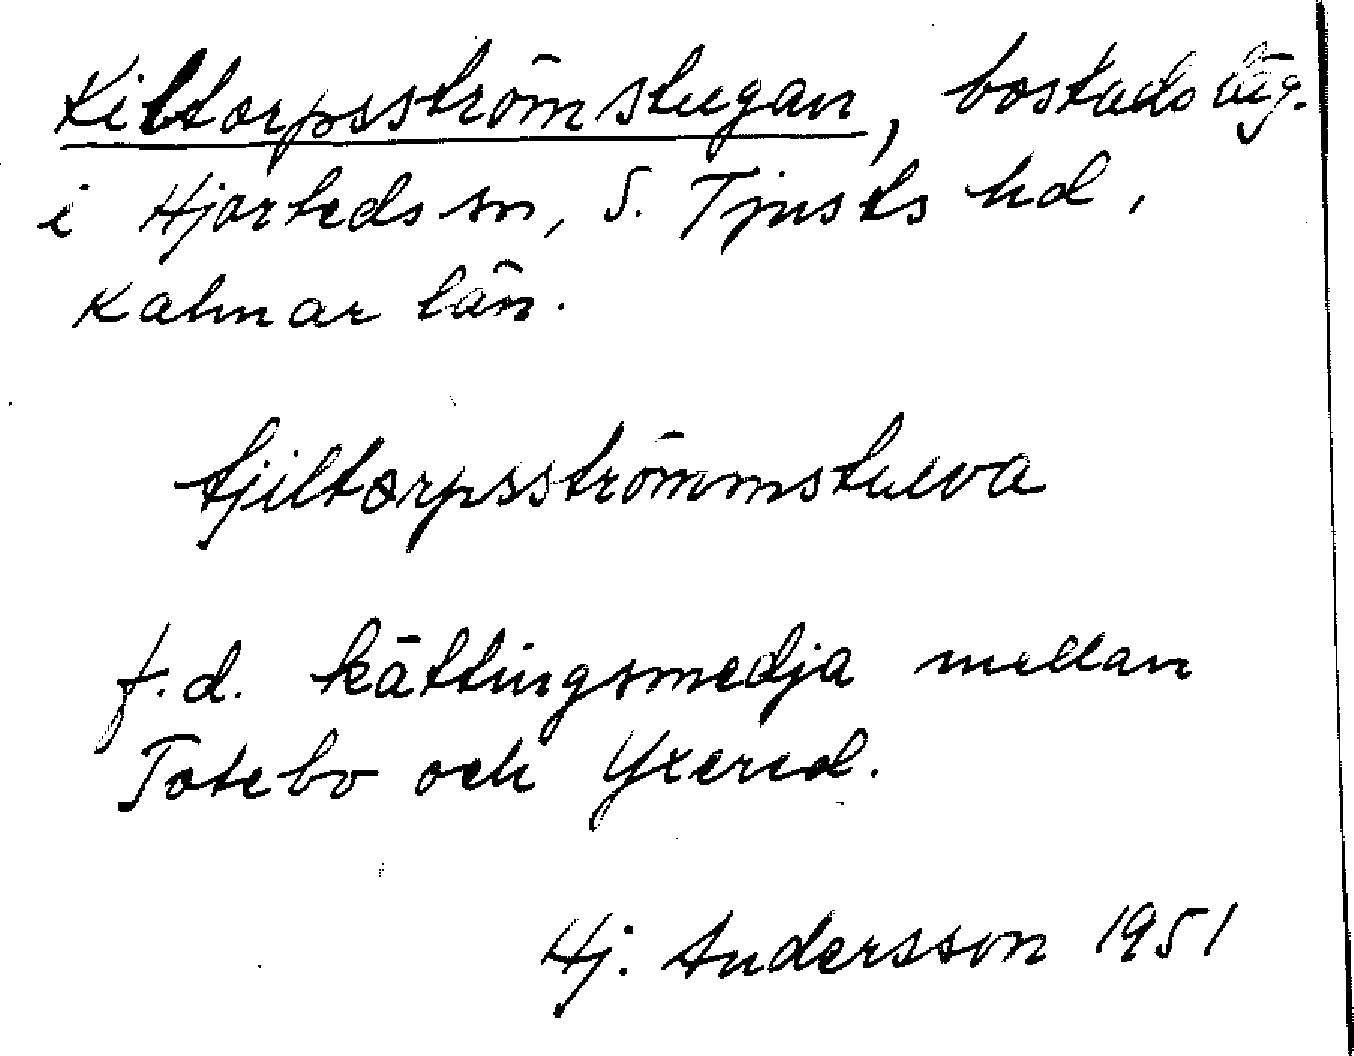 Kiltorpsströmstugan, bostadsläg.
i Hjorteds sn, S. Tjusts hd,
Kalmar län.
tjiltorpsströmmstuva
f.d. kättingsmedja mellan
Totebo och Yxered.
Hj. Andersson 1951